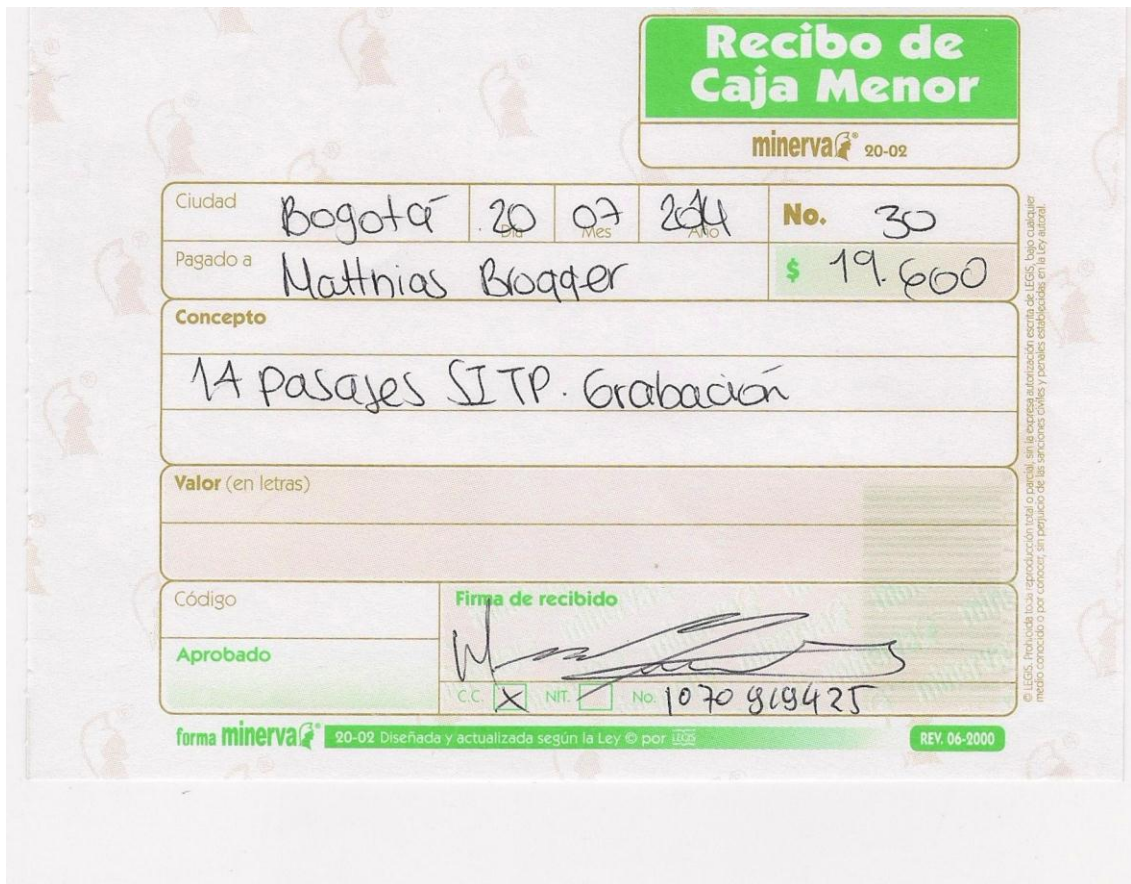 Recibo de
Caja Menor
minerva® 20-02
Ciudad Bogotá 20 Día 07 Mes 2014 Año No. 30
Pagado a Matthias Brogger $ 19.600
Concepto
14 pasajes SITP. Grabación
Valor (en letras)
Código
Firma de recibido
Aprobado
C.C. X NIT. No. 1070 919425
forma minerva® 20-02 Diseñada y actualizada según la Ley © por LEGIS REV. 06-2000
© LEGIS. Prohibida toda reproducción total o parcial, sin la expresa autorización escrita de LEGIS, bajo cualquier
medio conocido o por conocer, sin perjuicio de las sanciones civiles y penales establecidas en la Ley autoral.